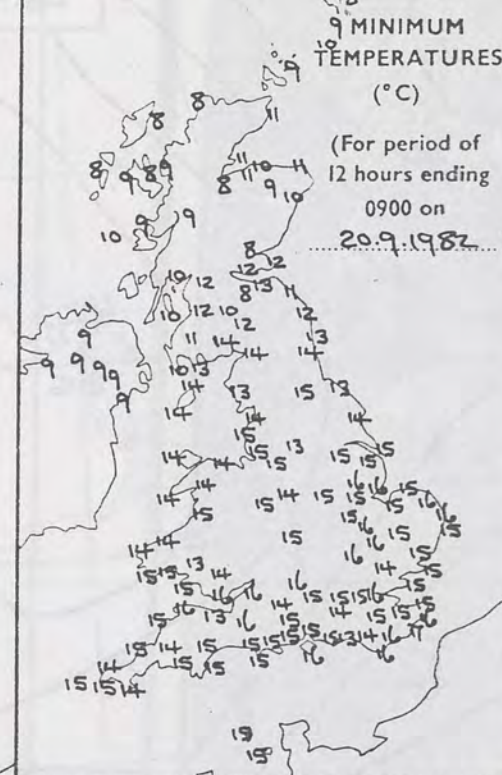 9 MINIMUM
10 TEMPERATURES
9
(°C)
8
8 11
(For period of
12 hours ending
0900 on
20.9.1982
11 10 11
8 9 8 9 11
8 9 10
9 9
10
8
12 12
10 12 13
8 11
10 12 10 12
12 13
9 11 14 14 14
9 9 9 9 10 13
14 13 15 13
9
14 14 14
15
15 13 15 15
14 14 15 15
14 16 16 15
14 15 14 15 15 15 16
15 15 16 16 15
14 14 15 16 15
13 16 14 15
15 15 14 16 15
15 16 16 14 15 15 15 16 15
15 16 13 16 15 14 15 15 16
15 14 15 15 15 15 15 15 13 14 16 17
14 15 15 15 16 16
15 15 14
15
15